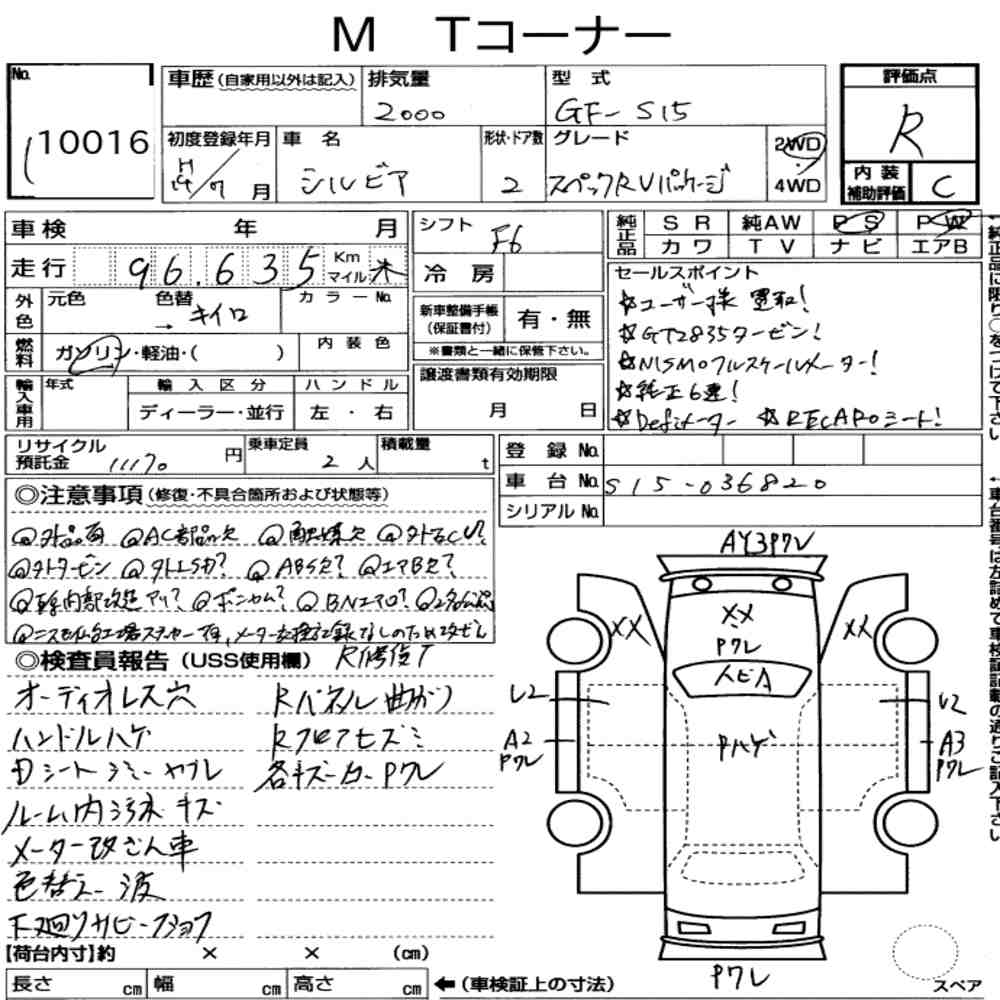 M Tコーナー
No. 10016
車歴(自家用以外は記入) 排気量 2000 型 式 GF-S15
評価点 R
初度登録年月 H / 7 月 車 名 シルビア 形状・ドア数 2 グレード スペックRVパッケージ 2WD・4WD
内装補助評価 C
車検 年 月
走行 96.635 Km マイル
シフト F6
純正品 SR 純AW PS PW
カワ TV ナビ エアB
冷 房
外色 元色 色替 → キイロ カラーNo.
新車整備手帳(保証書付) 有・無
※書類と一緒に保管下さい。
セールスポイント
☆ユーザー様 買取!
☆GT2835タービン!
☆NISMOフルスケールメーター!
☆純正6速!
☆Defiメーター ☆RECAROシート!
燃料 ガソリン・軽油・( ) 内装色
輸入車用 年式 輸入区分 ハンドル
ディーラー・並行 左・右
譲渡書類有効期限
月 日
リサイクル預託金 11170 円 乗車定員 2 人 積載量 t
登 録 No.
車 台 No. S15-036820
シリアル No.
◎注意事項(修復・不具合箇所および状態等)
AC部品欠
外タービン ABS欠? エアB欠?
◎検査員報告(USS使用欄) R修復
オーディオレス穴 Rパネル曲がり
ハンドルハゲ Rフロアヒズミ
Dシートシミーヤブレ 各キズーカーPワレ
ルーム内汚れキズ
メーター改ざん車
色替えー波
下廻りサビー
【荷台内寸】約 × × (cm)
長さ cm 幅 cm 高さ cm ←(車検証上の寸法)
AY3Pワレ
XX XX XX
Pワレ
U2 U2
A2 Pワレ Pハゲ A3 Pワレ
Pワレ
スペア
←純正品に限り○をつけて下さい。
←車台番号は左詰めで車検証記載の通りご記入下さい